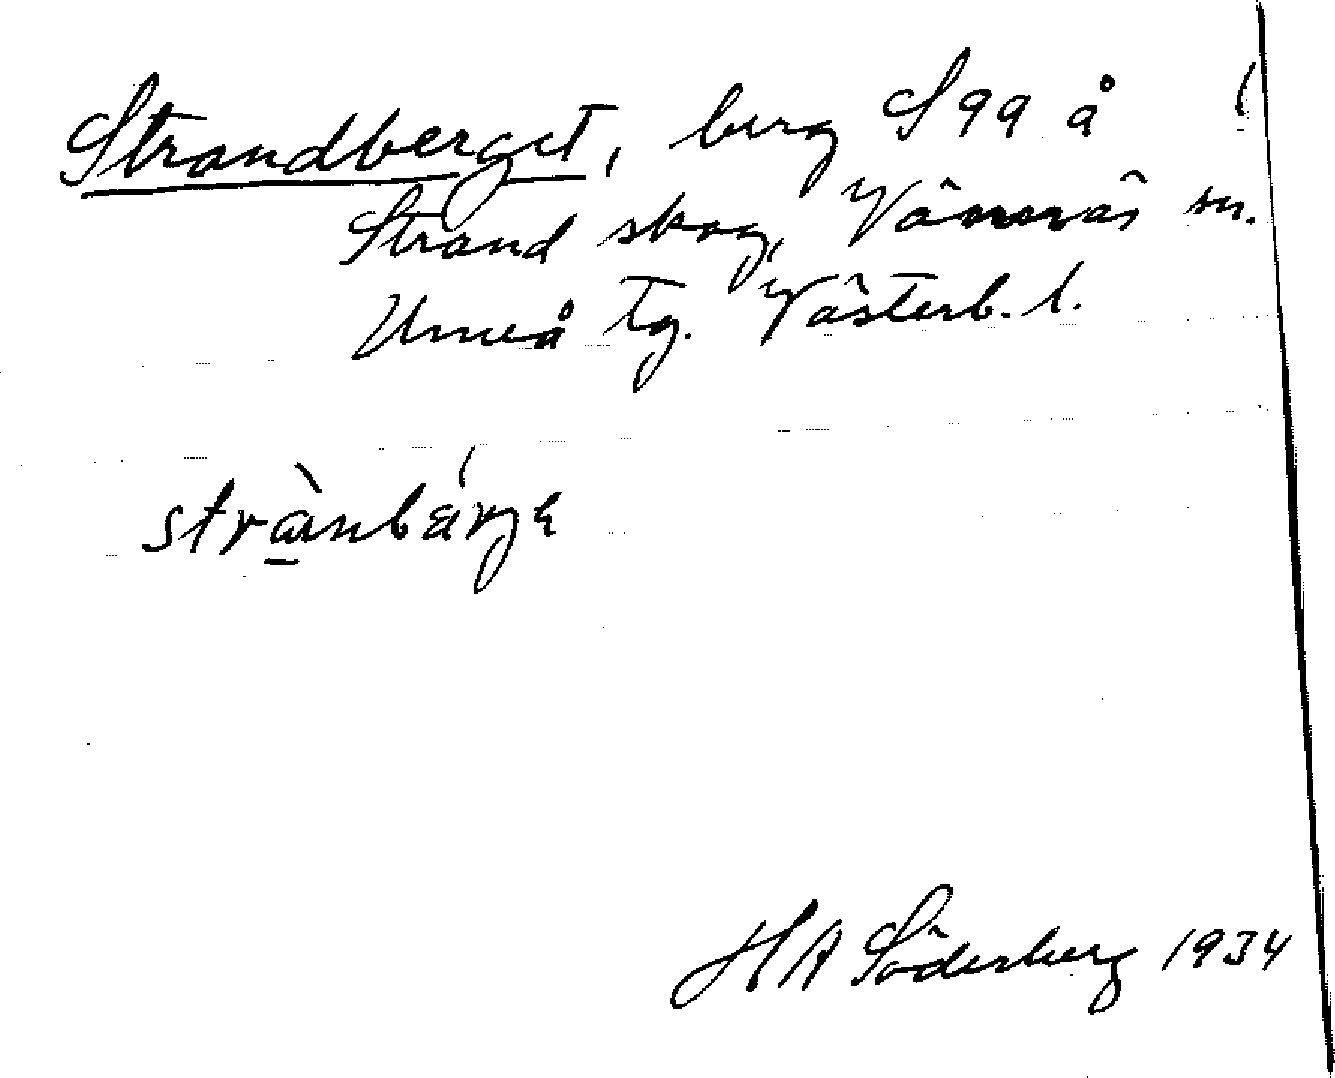 Strandberget, berg S 99 å
Strand skog, Vännäs sn.
Umeå tg. Västerb. l.
H A Söderberg 1934